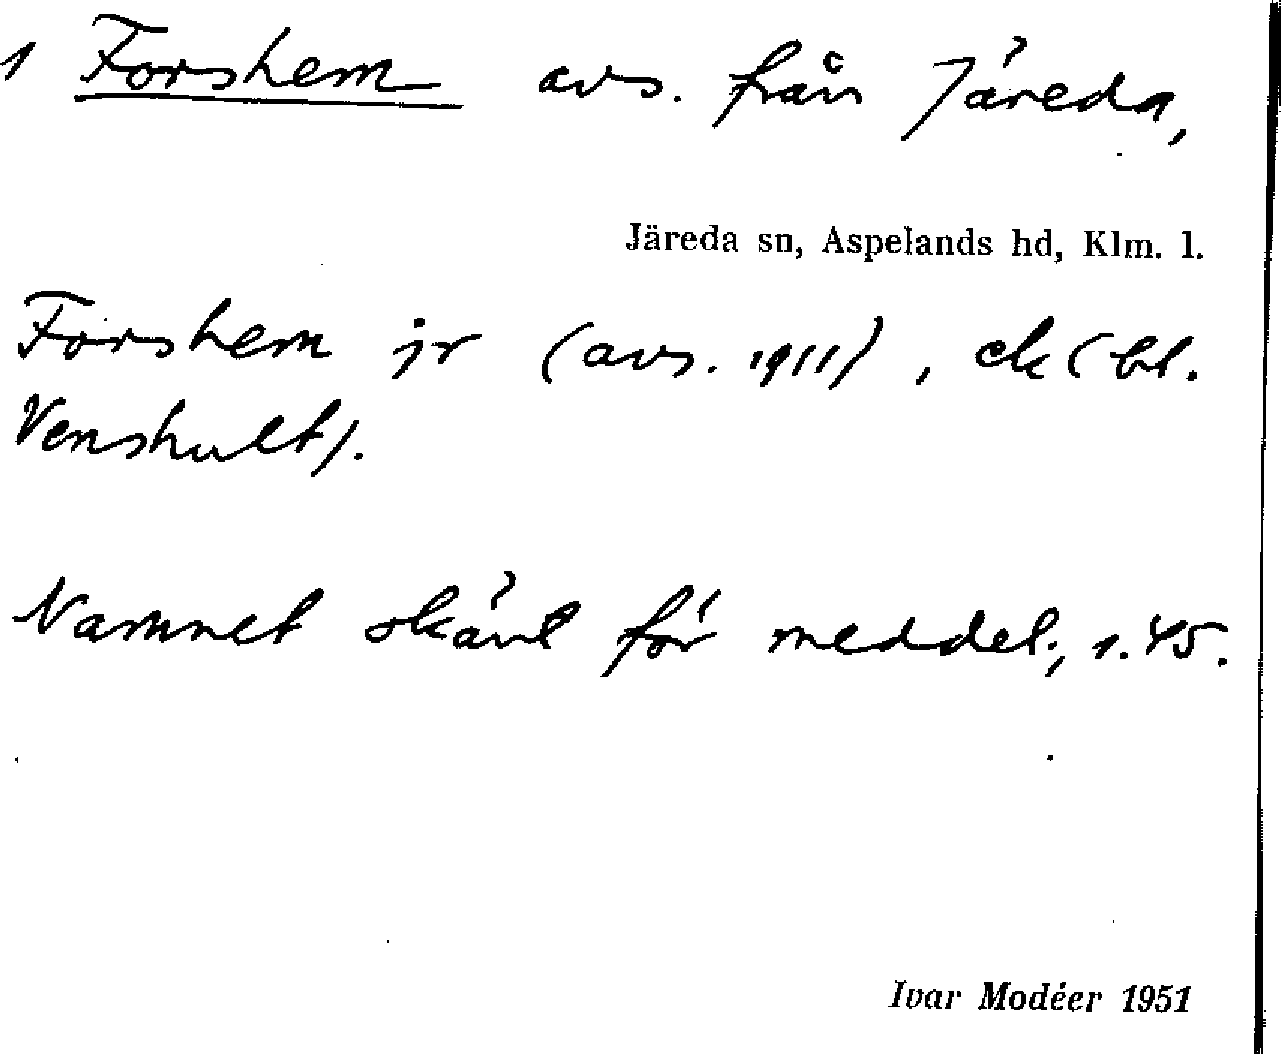 1 Forshem avs. från Järeda,
Järeda sn, Aspelands hd, Klm. l.
Forshem jr (avs. 1911), ek (bl.
Venshult).
Namnet okänt för meddel., s. 45.
Ivar Modéer 1951